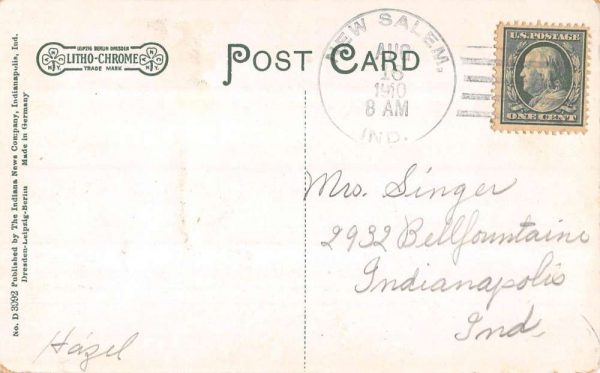 No. D 3092 Published by The Indiana News Company, Indianapolis, Ind.
Dresden-Leipzig-Berlin Made in Germany
LEIPZIG BERLIN DRESDEN
LITHO-CHROME
TRADE MARK
POST CARD
NEW SALEM,
AUG
16
1910
8 AM
IND.
U.S. POSTAGE
ONE CENT
Mrs. Singer
2932 Bellfountaine
Indianapolis
Ind.
Hazel